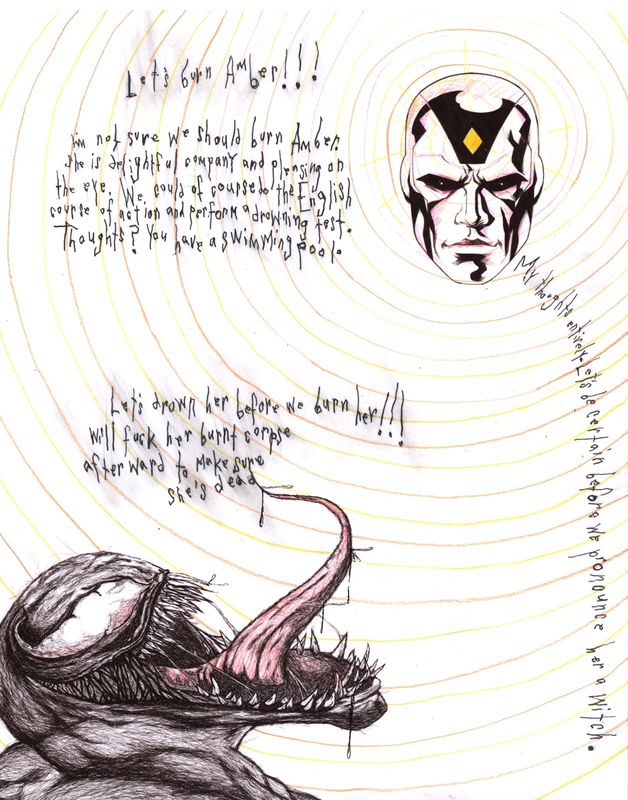 Let's burn Amber!!!
I'm not sure we should burn Amber.
She is delightful company and pleasing on
the eye. We could of course do the English
course of action and perform a drowning test.
Thoughts? You have a swimming pool.
My thoughts entirely. Let's be certain before we pronounce her a witch.
Let's drown her before we burn her!!!
Will fuck her burnt corpse
afterward to make sure
she's dead